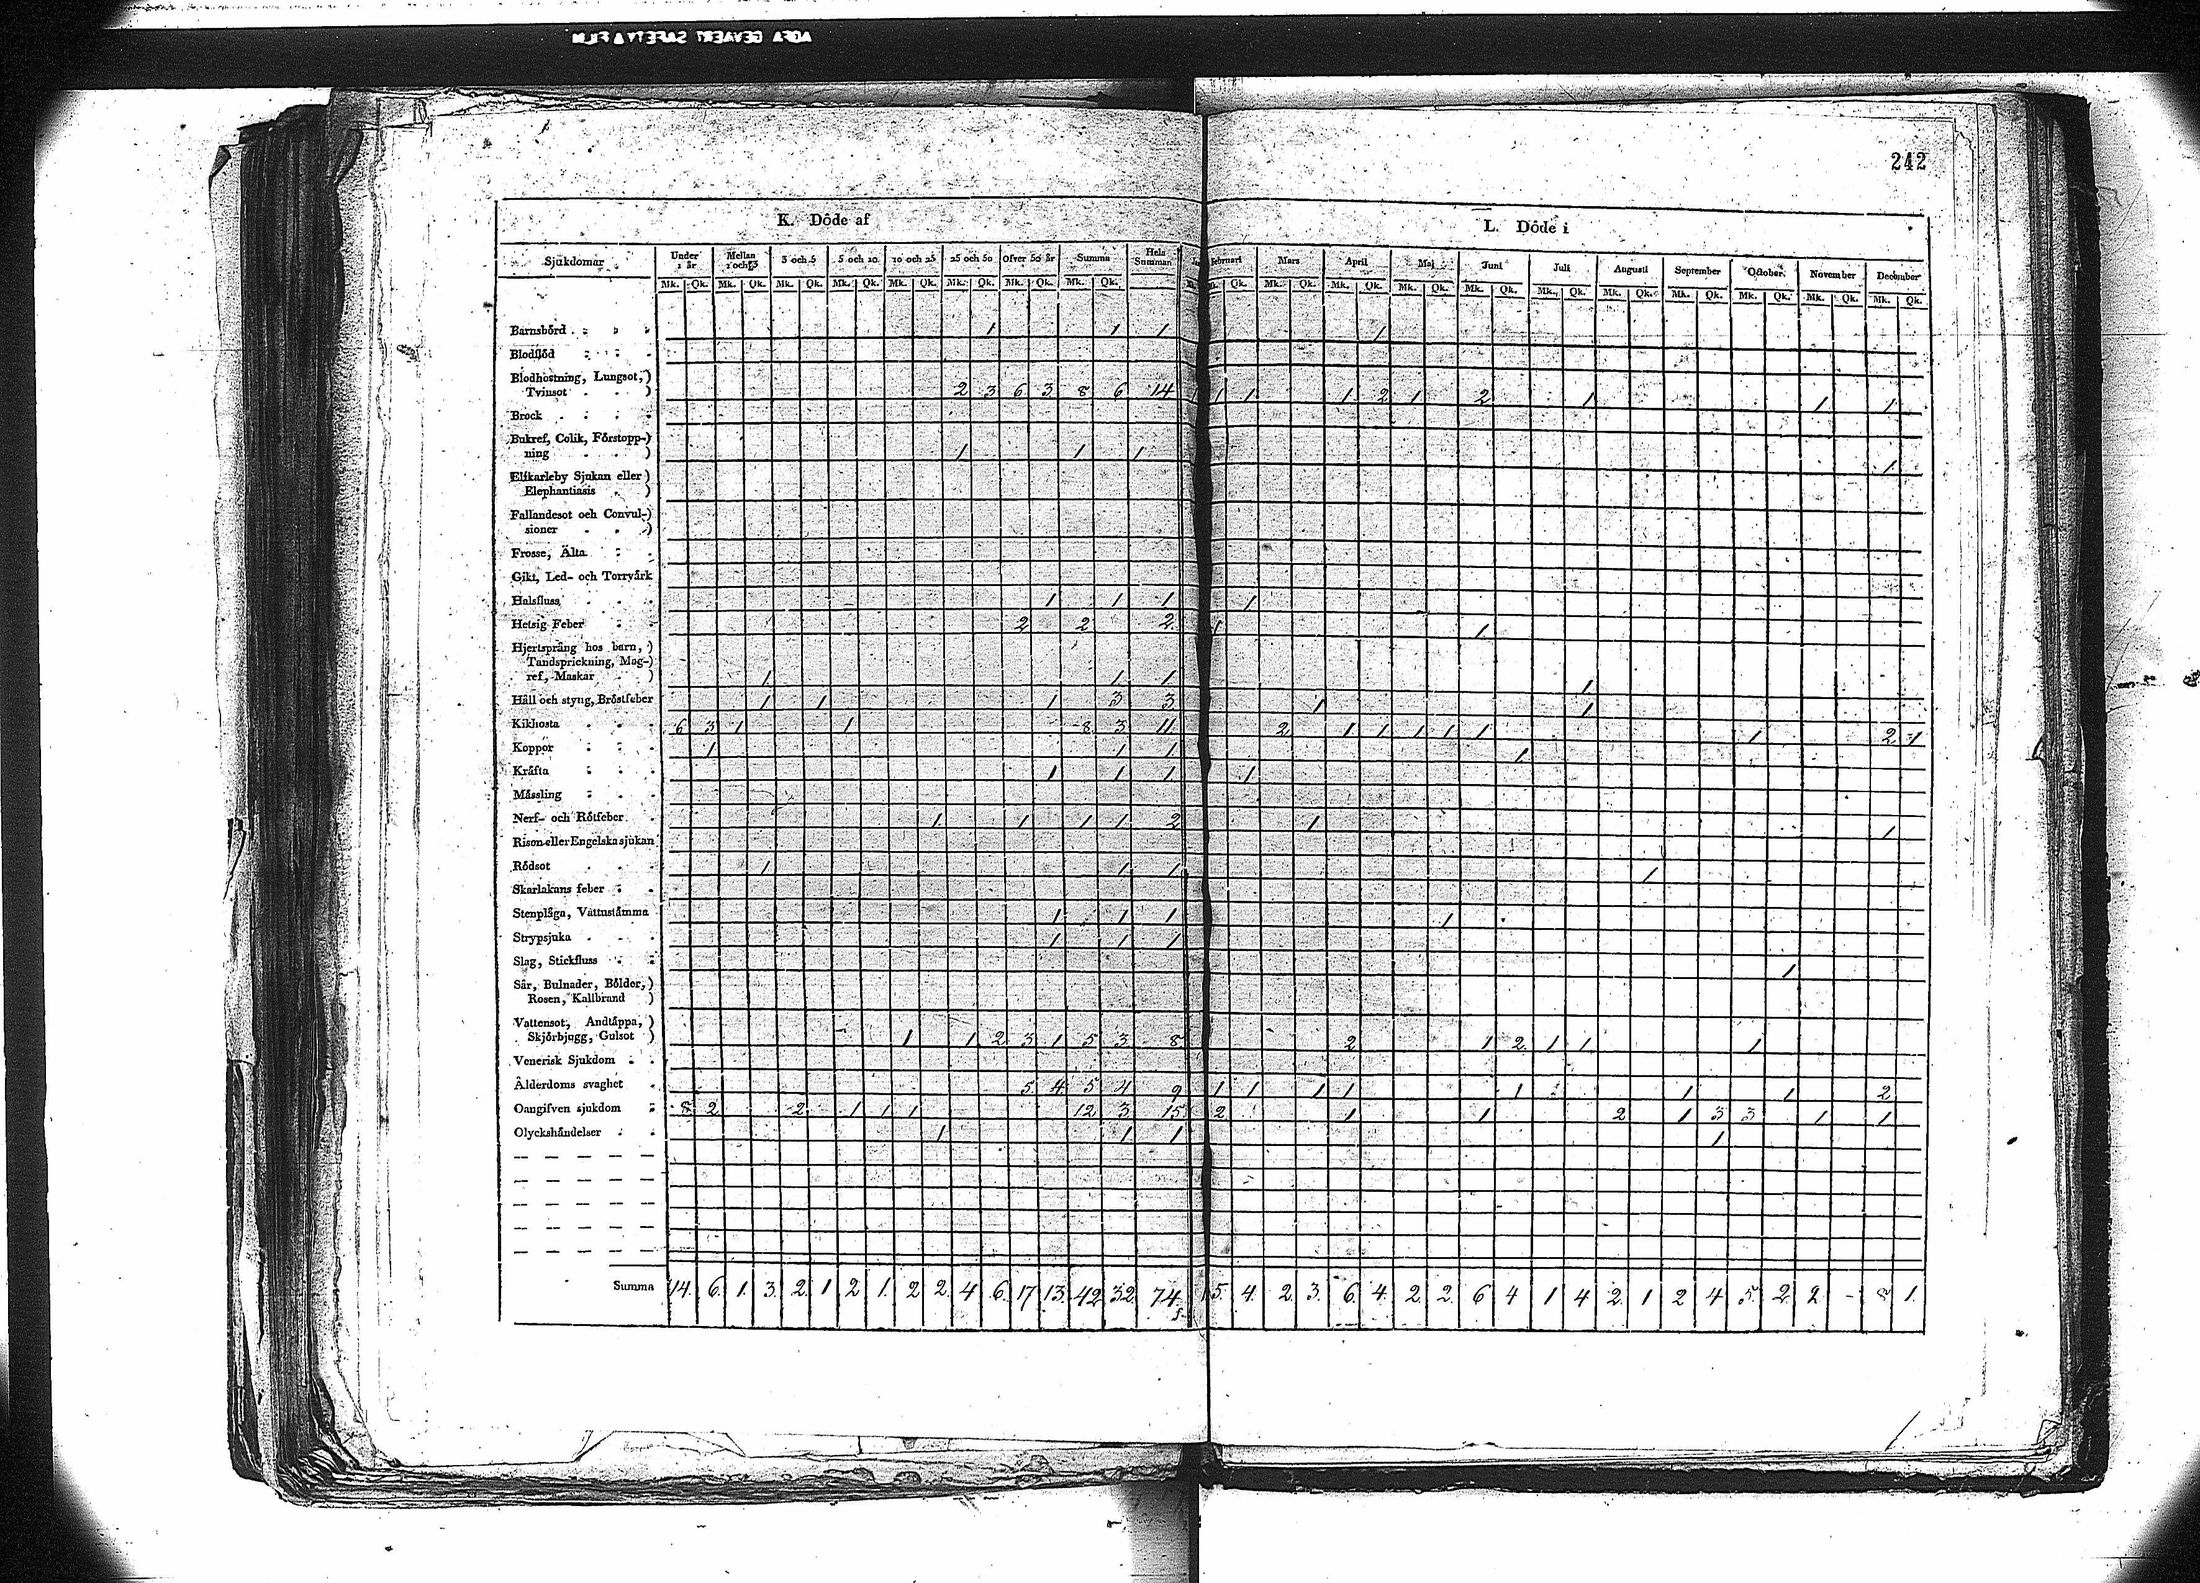 242
K. Döde af
L. Döde i
Sjukdomar Under 1 år Mellan 1 och 3 3 och 5 5 och 10 10 och 25 25 och 50 Öfver 50 år Summa Hela Summan Februari Mars April Maj Juni Juli Augusti September October November December
Mk. Qk. Mk. Qk. Mk. Qk. Mk. Qk. Mk. Qk. Mk. Qk. Mk. Qk. Mk. Qk. Qk. Mk. Qk. Mk. Qk. Mk. Qk. Mk. Qk. Mk. Qk. Mk. Qk. Mk. Qk. Mk. Qk. Mk. Qk. Mk. Qk.
Barnsbörd 1 1 1 1
Blodflöd
Blodhostning, Lungsot,)
Tvinsot ) 2 3 6 3 8 6 14 1 1 1 2 1 2 1 1 1
Brock
Bukref, Colik, Förstopp-)
ning ) 1 1 1 1
Elfkarleby Sjukan eller)
Elephantiasis )
Fallandesot och Convul-)
sioner )
Frosse, Älta
Gikt, Led- och Torrvärk
Halsfluss 1 1 1 1
Hetsig Feber 2 2 2 1 1
Hjertsprång hos barn, )
Tandsprickning, Mag-)
ref, Maskar ) 1 1 1 1
Håll och styng, Bröstfeber 1 1 1 3 3 1 1
Kikhosta 6 3 1 1 8 3 11 2 1 1 1 1 1 1 2 1
Koppor 1 1 1 1
Kräfta 1 1 1 1
Mässling
Nerf- och Rötfeber 1 1 1 1 2 1 1
Risen eller Engelska sjukan
Rödsot 1 1 1 1
Skarlakans feber
Stenplåga, Vattustämma 1 1 1 1
Strypsjuka 1 1 1
Slag, Stickfluss 1
Sår, Bulnader, Bölder,)
Rosen, Kallbrand )
Vattensot, Andtäppa, )
Skjörbjugg, Gulsot ) 1 1 2 3 1 5 3 8 2 1 2 1 1 1
Venerisk Sjukdom
Ålderdoms svaghet 5 4 5 4 9 1 1 1 1 1 1 1 2
Oangifven sjukdom 8 2 2 1 1 1 12 3 15 2 1 1 2 1 3 3 1 1
Olyckshändelser 1 1 1 1
Summa 14. 6. 1. 3. 2. 1 2 1. 2 2. 4 6. 17 13. 42 32 74. 5. 4. 2. 3. 6. 4. 2 2. 6 4 1 4 2. 1 2 4 5. 2. 2 - 8 1.